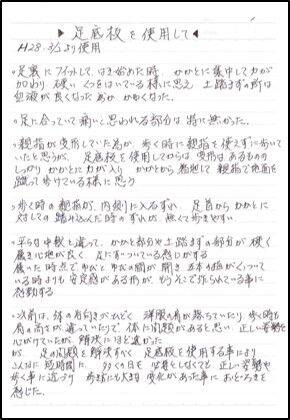 ▶ 足底板を使用して ◀
H28.3/1より使用
◦足裏にフィットして、はき始めた時、かかとに集中して力が
加わり、硬いくつをはいている様に思え、土踏まずの所は
血液が良くなった為か かゆくなった。
◦足に合っていて痛いと思われる部分は特に無かった。
◦親指が変形していた為か、歩く時に親指を使えずに歩いて
いたと思うが、足底板を使用してからは変形はあるものの
しっかりかかとに力が入り かかとから着地して 親指で地面を
蹴って歩けている様に思う
◦歩く時の親指が、内側に入るずれ、足首からかかとに
対しての踏み込んだ時のずれが、無くて歩きやすい
◦平らな中敷とも違って、かかと部分や土踏まずの部分が硬く
履き心地が良く、足にぎづいている感じがする
履いた時点でゆびとゆびの間が開き 五本の指がくっついて
いる時よりも安定感がある形が、もうそこで作られている事に
感動する
◦以前は、体の右向きがひどく 洋服の肩が落ちていたり、歩く時も
肩の高さが違っていたりで、体に問題があると思い 正しい姿勢を
心がけていたが、解決にほど遠かった
が、足の問題を解決すべく 足底板を使用する事により
こんなに短時間に、多くの日を必要としなくても、正しい姿勢や
歩く事に近づり 歩きにも大きな変化があった事に おどろきを
感じた。